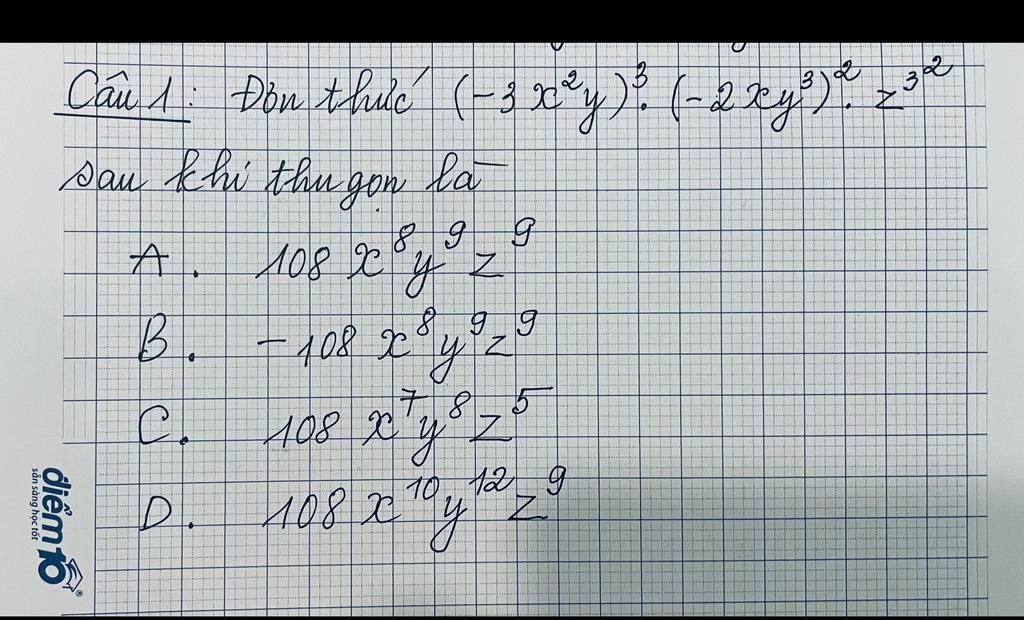 Câu 1: Đơn thức (-3x²y)³.(-2xy³)².z³²
sau khi thu gọn là
A. 108 x⁸y⁹z⁹
B. -108 x⁸y⁹z⁹
C. 108 x⁷y⁸z⁵
D. 108 x¹⁰y¹²z⁹
điểm10
sẵn sàng học tốt